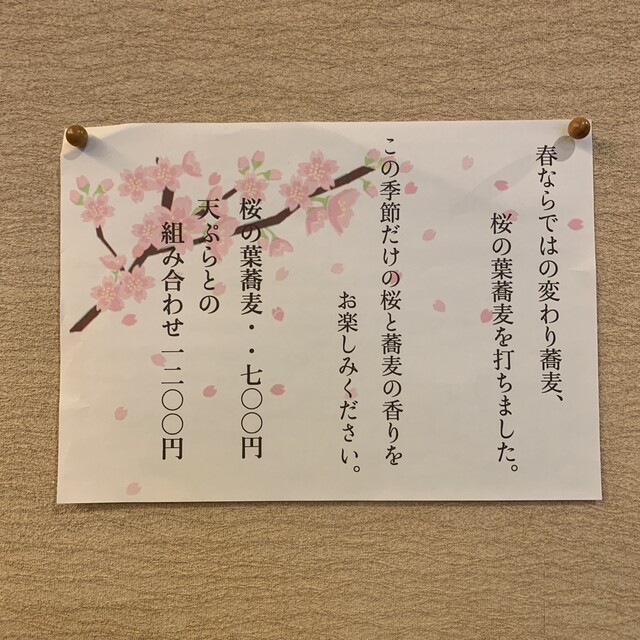 春ならではの変わり蕎麦、
桜の葉蕎麦を打ちました。
この季節だけの桜と蕎麦の香りを
お楽しみください。
桜の葉蕎麦・・七〇〇円
天ぷらとの
組み合わせ一二〇〇円